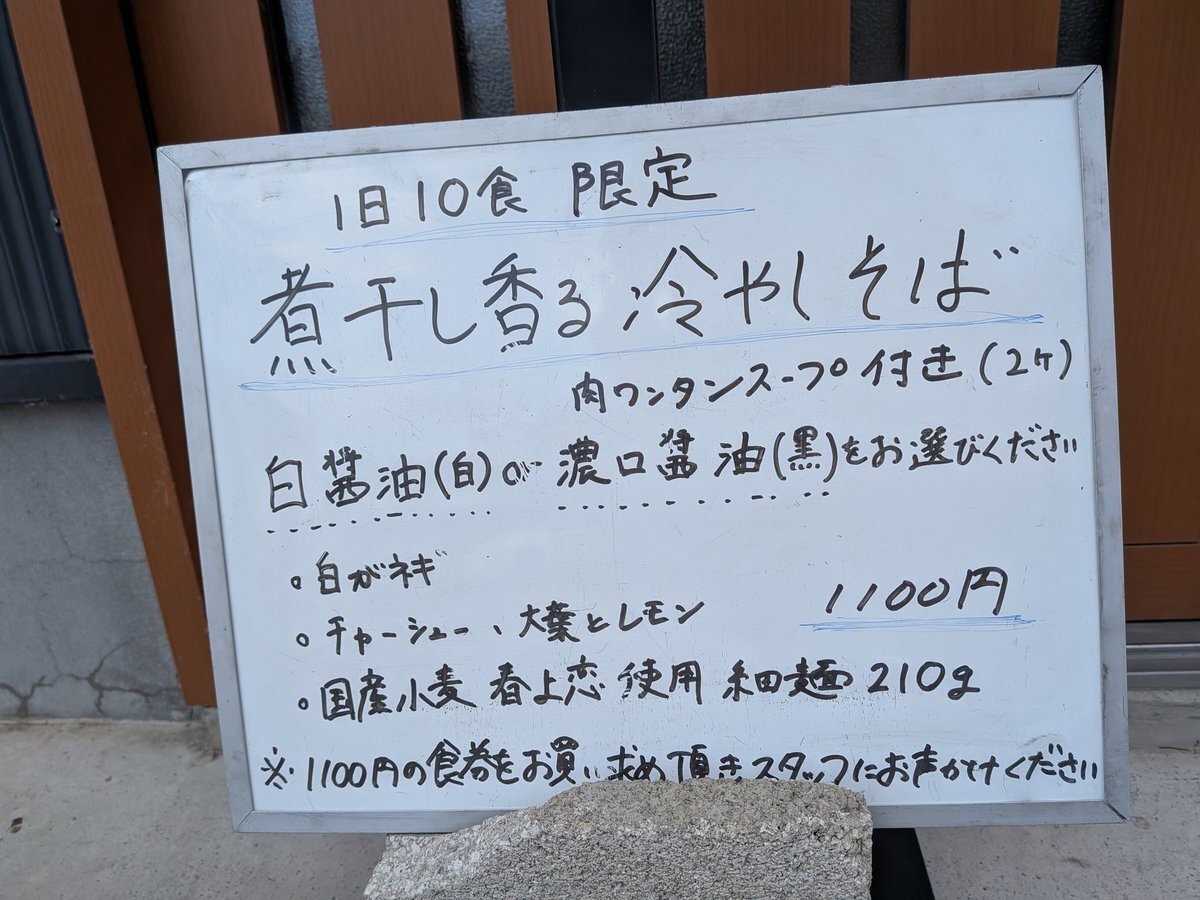 1日10食 限定
煮干し香る冷やしそば
肉ワンタンスープ付き(2ヶ)
白醤油(白)か 濃口醤油(黒)をお選びください
。白ガネギ
。チャーシュー、大葉とレモン
1100円
。国産小麦 春よ恋 使用 細麺 210g
※1100円の食券をお買い求め頂きスタッフにお声かけください